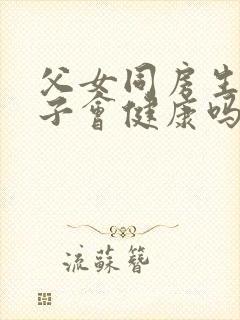 父女同房生
子會健康吗
流蘇簪